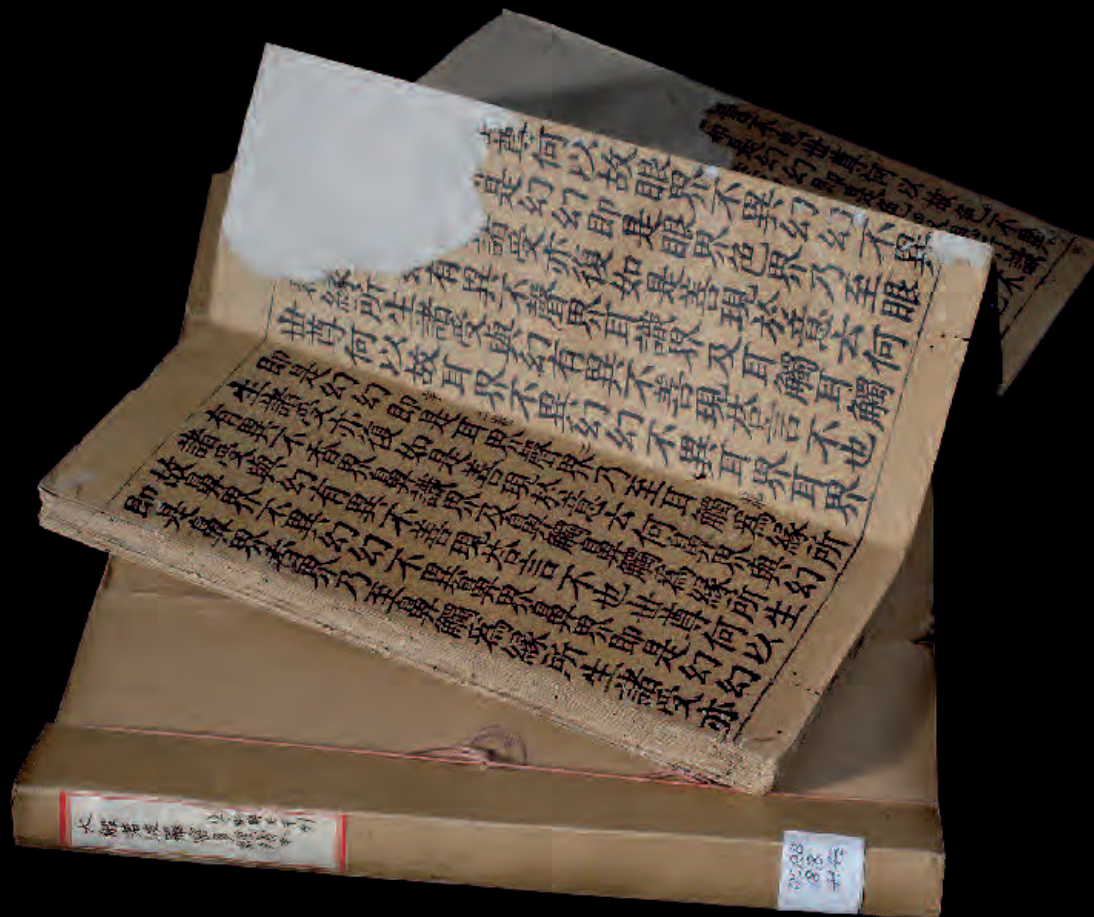 尊何以故眼界不異幻幻不異
是幻幻即是眼界色界乃至眼
諸受亦復如是善現於意云何
有異不聲界耳識界及耳觸耳觸
緣所生諸受與幻有異不善現答言不也
世尊何以故耳界不異幻幻不異耳界耳界
即是幻幻即是耳界聲界乃至耳觸為緣所
生諸受亦復如是善現於意云何鼻界與幻
有異不香界鼻識界及鼻觸鼻觸為緣所生
諸受與幻有異不善現答言不也世尊何以
故鼻界不異幻幻不異鼻界鼻界即是幻幻
即是鼻界香界乃至鼻觸為緣所生諸受亦
大般若波羅蜜多經